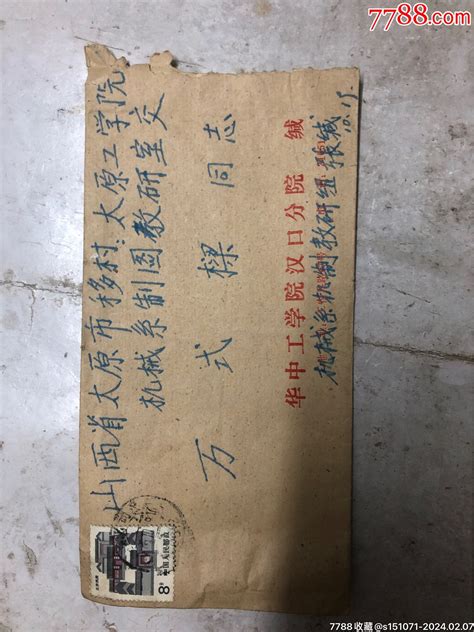 7788.com
山西省太原市移村：太原工学院
机械系制图教研室交
万式樑同志
华中工学院汉口分院 缄
机械系机制教研组 张缄
中国人民邮政
8分
7788收藏@s151071-2024.02.07